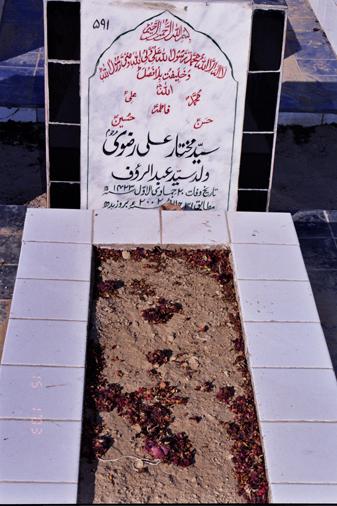 ۵۹۱
بسم اللہ الرحمن الرحیم
لا الہ الا اللہ محمد رسول اللہ علی ولی اللہ وصی رسول اللہ
وخلیفتہ بلا فصل
اللہ
محمدؐ علیؑ
فاطمہؑ
حسنؑ حسینؑ
سید مختار علی رضوی مرحوم
ولد سید عبدالرؤف
تاریخ وفات ۲۰ جمادی الاول ۱۴۲۳ھ
مطابق ۲۰۰۲ء بروز بدھ
591
15 1 '03